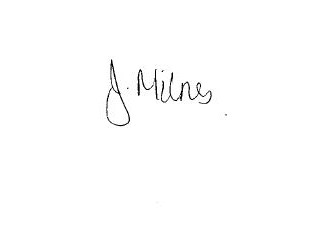 J. Milnes